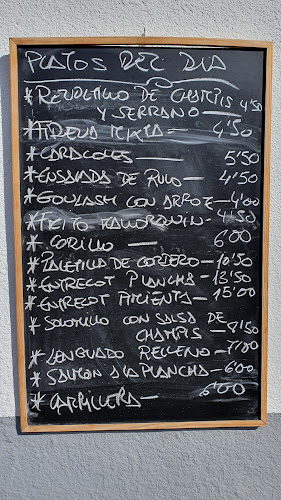 PLATOS DEL DIA
*REVOLTILLO DE CHAMPIS 4'50
Y SERRANO
* MIXTA — 4'50
*CARACOLES — 5'50
*ENSALADA DE RULO — 4'50
*GOULASH CON ARROZ — 4'00
*FRITO MALLORQUIN — 4'50
* CORILLO — 6'00
*PALETILLA DE CORDERO — 10'50
*ENTRECOT PLANCHA — 13'50
*ENTRECOT PIMIENTA — 15'00
*SOLOMILLO CON SALSA DE
CHAMPIS — 8'50
*LENGUADO RELLENO — 7'80
*SALMON A LA PLANCHA — 6'00
*CARRILLERA — 6'00